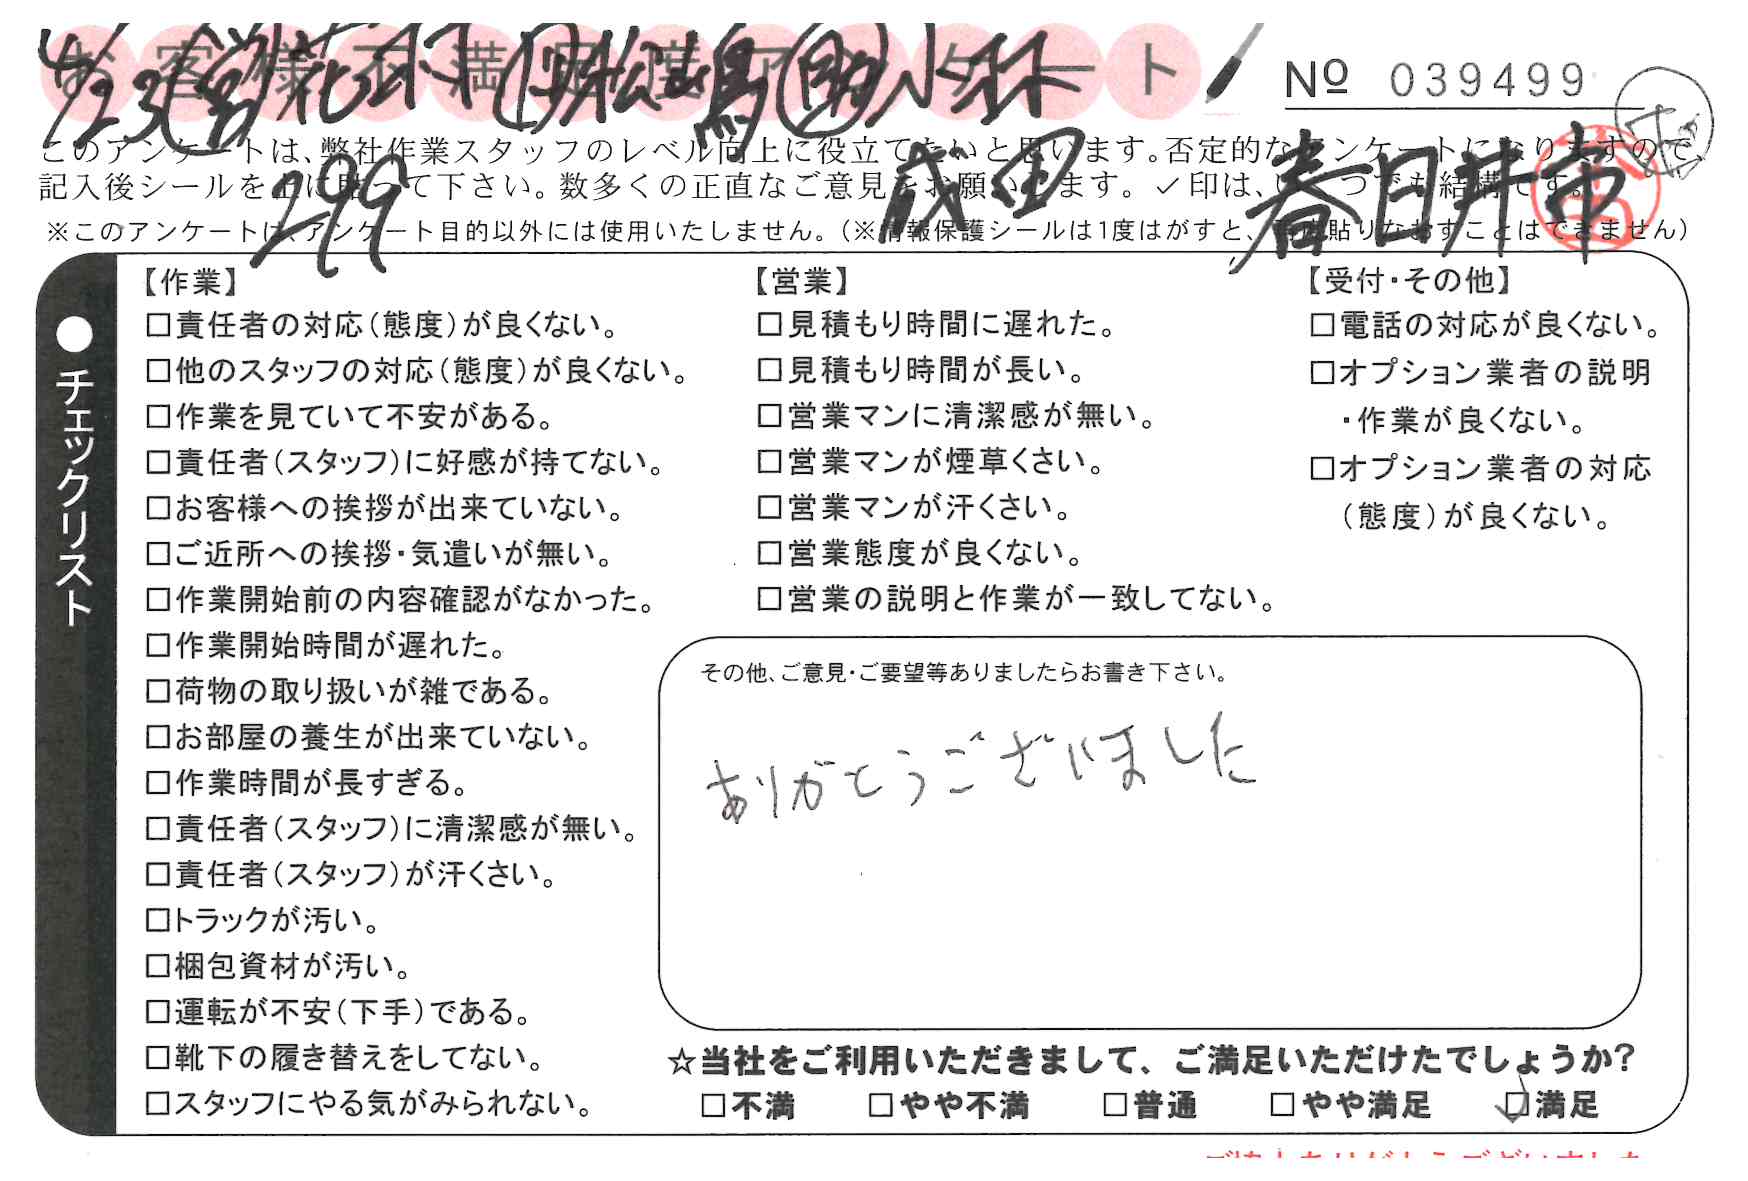 お客様不満足度アンケート
4/23 花木 松嶋 小林
№ 039499
このアンケートは、弊社作業スタッフのレベル向上に役立てたいと思います。否定的なアンケートになりますので、
記入後シールを上に貼って下さい。数多くの正直なご意見をお願いします。✓印は、いくつでも結構です。
299 成田 春日井市
※このアンケートは、アンケート目的以外には使用いたしません。(※情報保護シールは1度はがすと、再度貼りなおすことはできません)
●チェックリスト
【作業】
□責任者の対応(態度)が良くない。
□他のスタッフの対応(態度)が良くない。
□作業を見ていて不安がある。
□責任者(スタッフ)に好感が持てない。
□お客様への挨拶が出来ていない。
□ご近所への挨拶・気遣いが無い。
□作業開始前の内容確認がなかった。
□作業開始時間が遅れた。
□荷物の取り扱いが雑である。
□お部屋の養生が出来ていない。
□作業時間が長すぎる。
□責任者(スタッフ)に清潔感が無い。
□責任者(スタッフ)が汗くさい。
□トラックが汚い。
□梱包資材が汚い。
□運転が不安(下手)である。
□靴下の履き替えをしてない。
□スタッフにやる気がみられない。
【営業】
□見積もり時間に遅れた。
□見積もり時間が長い。
□営業マンに清潔感が無い。
□営業マンが煙草くさい。
□営業マンが汗くさい。
□営業態度が良くない。
□営業の説明と作業が一致してない。
【受付・その他】
□電話の対応が良くない。
□オプション業者の説明
・作業が良くない。
□オプション業者の対応
(態度)が良くない。
その他、ご意見・ご要望等ありましたらお書き下さい。
ありがとうございました
☆当社をご利用いただきまして、ご満足いただけたでしょうか?
□不満 □やや不満 □普通 □やや満足 ☑満足
ご協力ありがとうございました